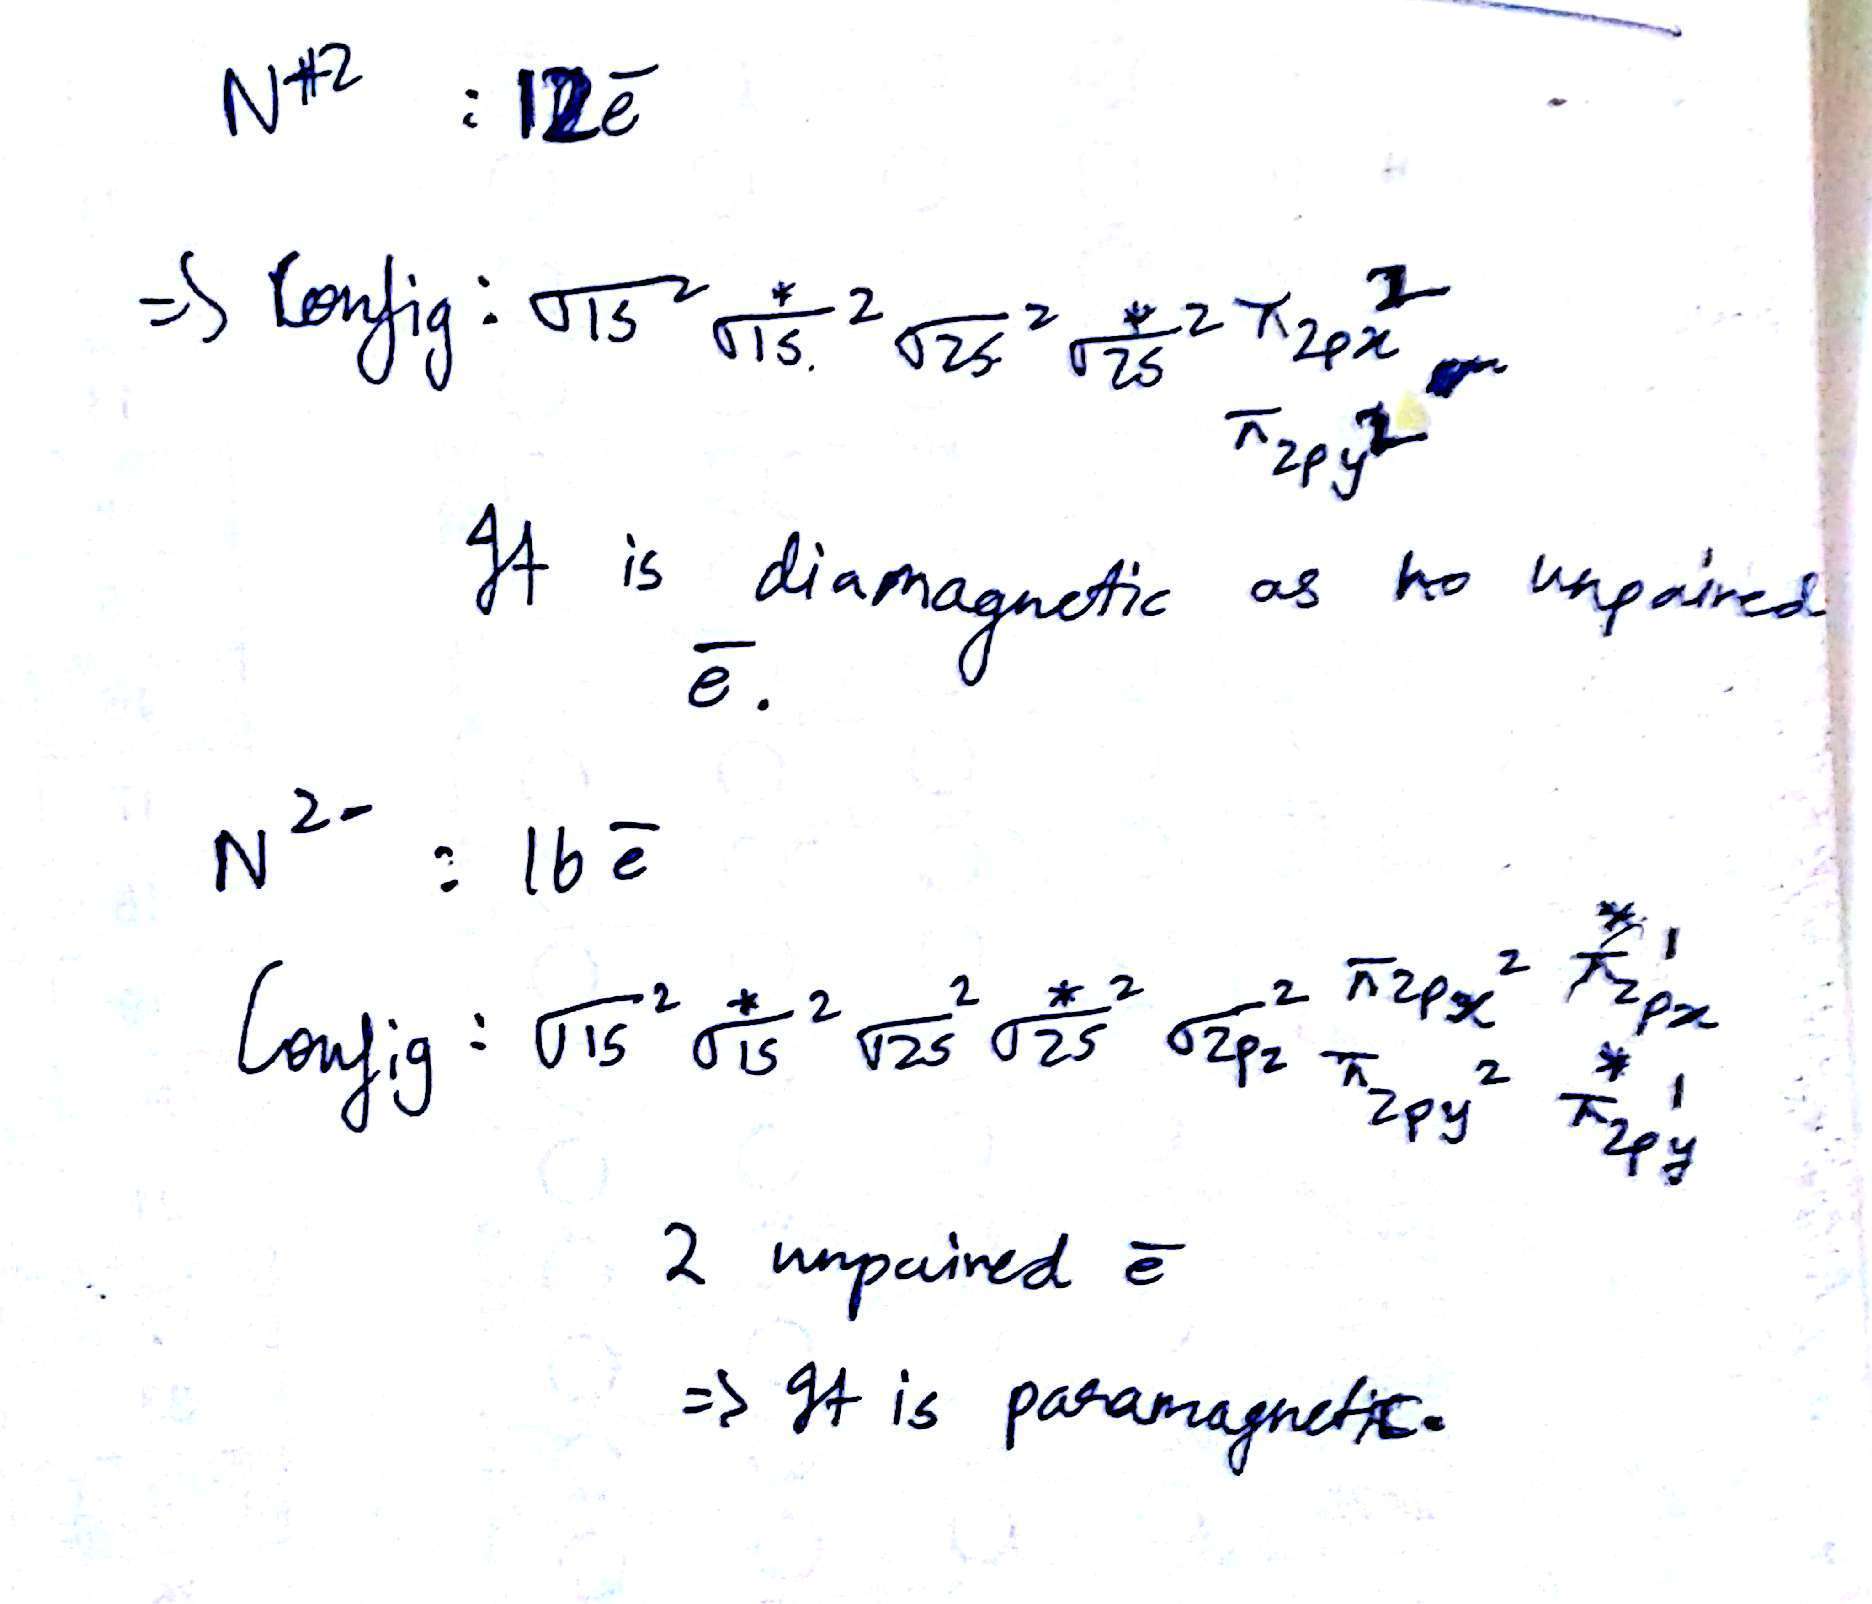 N⁺² : 12e̅
=> Config : σ1s² σ*1s.² σ2s² σ*2s² π2px²
π2py²
It is diamagnetic as no unpaired
e̅.
N²⁻ : 16e̅
Config : σ1s² σ*1s² σ2s² σ*2s² σ2pz² π2px² π*2px¹
π2py² π*2py¹
2 unpaired e̅
=> It is paramagnetic.